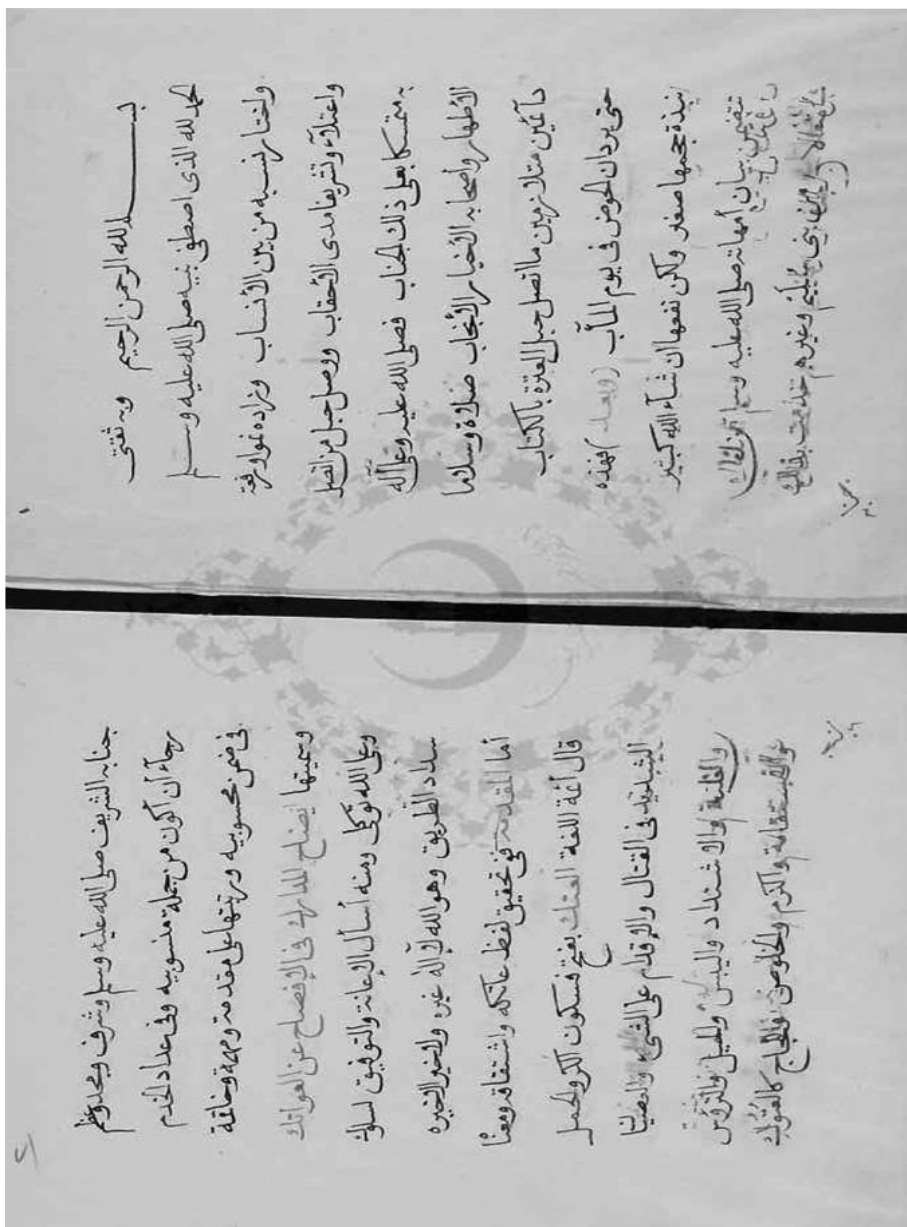 بسم الله الرحمن الرحيم وبه ثقتي
الحمد لله الذى اصطفى نبيه صلى الله عليه وسلم
واختار نسبه من بين الأنساب وزاده نموا ورفعة
واعتلاء وتشريفا مدى الأحقاب ووصل حبل من اتصل
به متمسكا بعلى ذلك الجناب فصلى الله عليه وعلى آله
الأطهار وأصحابه الأخيار الأنجاب صلاة وسلاما
دائمين متلازمين ما اتصل حبل العترة بالكتاب
حتى يردان الحوض فى يوم المآب (وبعد) فهذه
نبذة حجمها صغير ولكن نفعها ان شاء الله كبير
تتضمن بيان أمهاته صلى الله عليه وسلم
وغيرهم خدمت بذلك
جنابه الشريف صلى الله عليه وسلم وشرف ومجد وعظم
رجاء أن أكون من جملة منسوبيه وفى عداد الخدم
فى ضمن محسوبيه ورتبتها على مقدمة ومهمة وخاتمة
وسميتها ايضاح المدارك فى الإفصاح عن العواتك
وعلى الله توكلى ومنه أسأل الإعانة والتوفيق لسلوك
سداد الطريق وهو الله لا آله غيره ولا خير الا خيره
أما المقدمة ففى تحقيق لفظ عاتكه واشتقاقه ومعناه
قال أئمة اللغة العتك بفتح فسكون الكر والحمل
الشديد فى القتال والإقدام على الشئ
والاشتداد واليبس والميل
والاستقامة والكرم والخلوص واللجاج كالعتوك